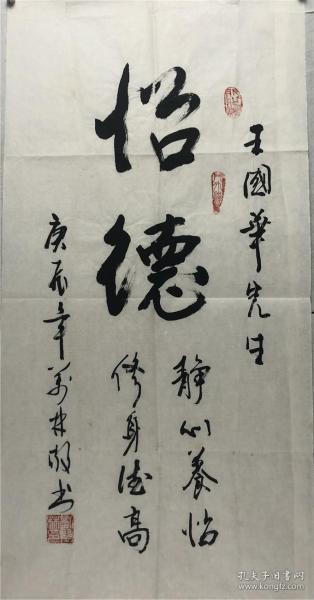 王國華先生
怡德
靜心養怡
修身德高
庚辰年姜林敬书
孔夫子旧书网
kongfz.com